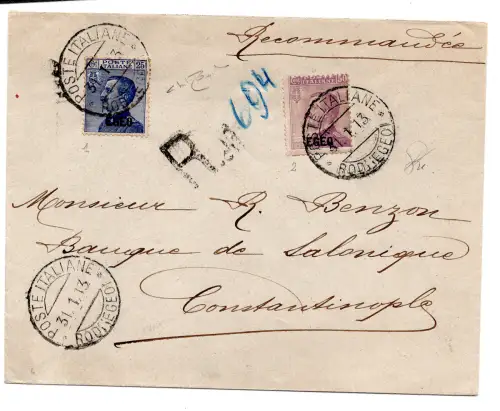 Recommandée
POSTE ITALIANE
POSTE ITALIANE
25
EGEO
1
R
694
EGEO
2
POSTE ITALIANE
31.1.13
RODI (EGEO)
Monsieur R. Benzon
Banque de Salonique
Constantinople
POSTE ITALIANE
31.1.13
RODI (EGEO)